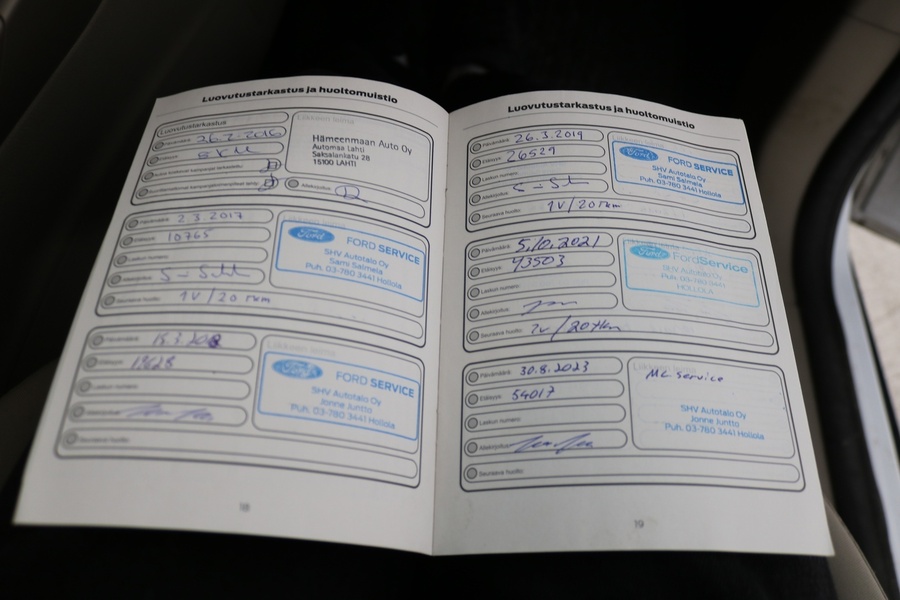 Luovutustarkastus ja huoltomuistio
Luovutustarkastus
Päivämäärä: 26.2-2016
Hämeenmaan Auto Oy
Automaa Lahti
Saksalankatu 28
15100 LAHTI
Allekirjoitus:
Päivämäärä: 2.3.2017
10765
Laskun numero:
Allekirjoitus:
Seuraava huolto: 1V/20 tkm
Ford FORD SERVICE
SHV Autotalo Oy
Sami Salmela
Puh. 03-780 3441 Hollola
Päivämäärä: 15.3.2018
Laskun numero:
Allekirjoitus:
Seuraava huolto:
Ford FORD SERVICE
SHV Autotalo Oy
Jonne Juntto
Puh. 03-780 3441 Hollola
18
Luovutustarkastus ja huoltomuistio
Päivämäärä: 26.3.2019
26529
Laskun numero:
Allekirjoitus:
Seuraava huolto: 1V/20 tkm
Ford FORD SERVICE
SHV Autotalo Oy
Sami Salmela
Puh. 03-780 3441 Hollola
Päivämäärä: 5.10.2021
43503
Laskun numero:
Allekirjoitus:
Seuraava huolto: 1v/20tkm
Ford FordService
SHV Autotalo Oy
Puh. 03-780 3441
HOLLOLA
Päivämäärä: 30.8.2023
54017
Laskun numero:
Allekirjoitus:
Seuraava huolto:
ML service
SHV Autotalo Oy
Jonne Juntto
Puh. 03-780 3441 Hollola
19